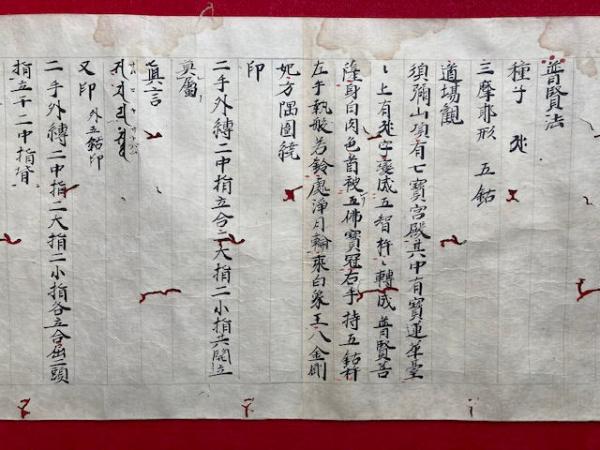 普賢法
種子
三摩耶形 五鈷
道場觀
須彌山頂有七寶宮殿其中有寶蓮華臺
上有 字變成五智杵〻轉成普賢菩
薩身白肉色首被五佛寶冠右手持五鈷杵
左手執般若鈴處淨月輪乘白象王八金剛
妃方隅圍繞
印
二手外縛二中指立合二大指二小指共開立
真言
又印 外五鈷印
二手外縛二中指二大指二小指各立合屈二頭
指立于二中指背